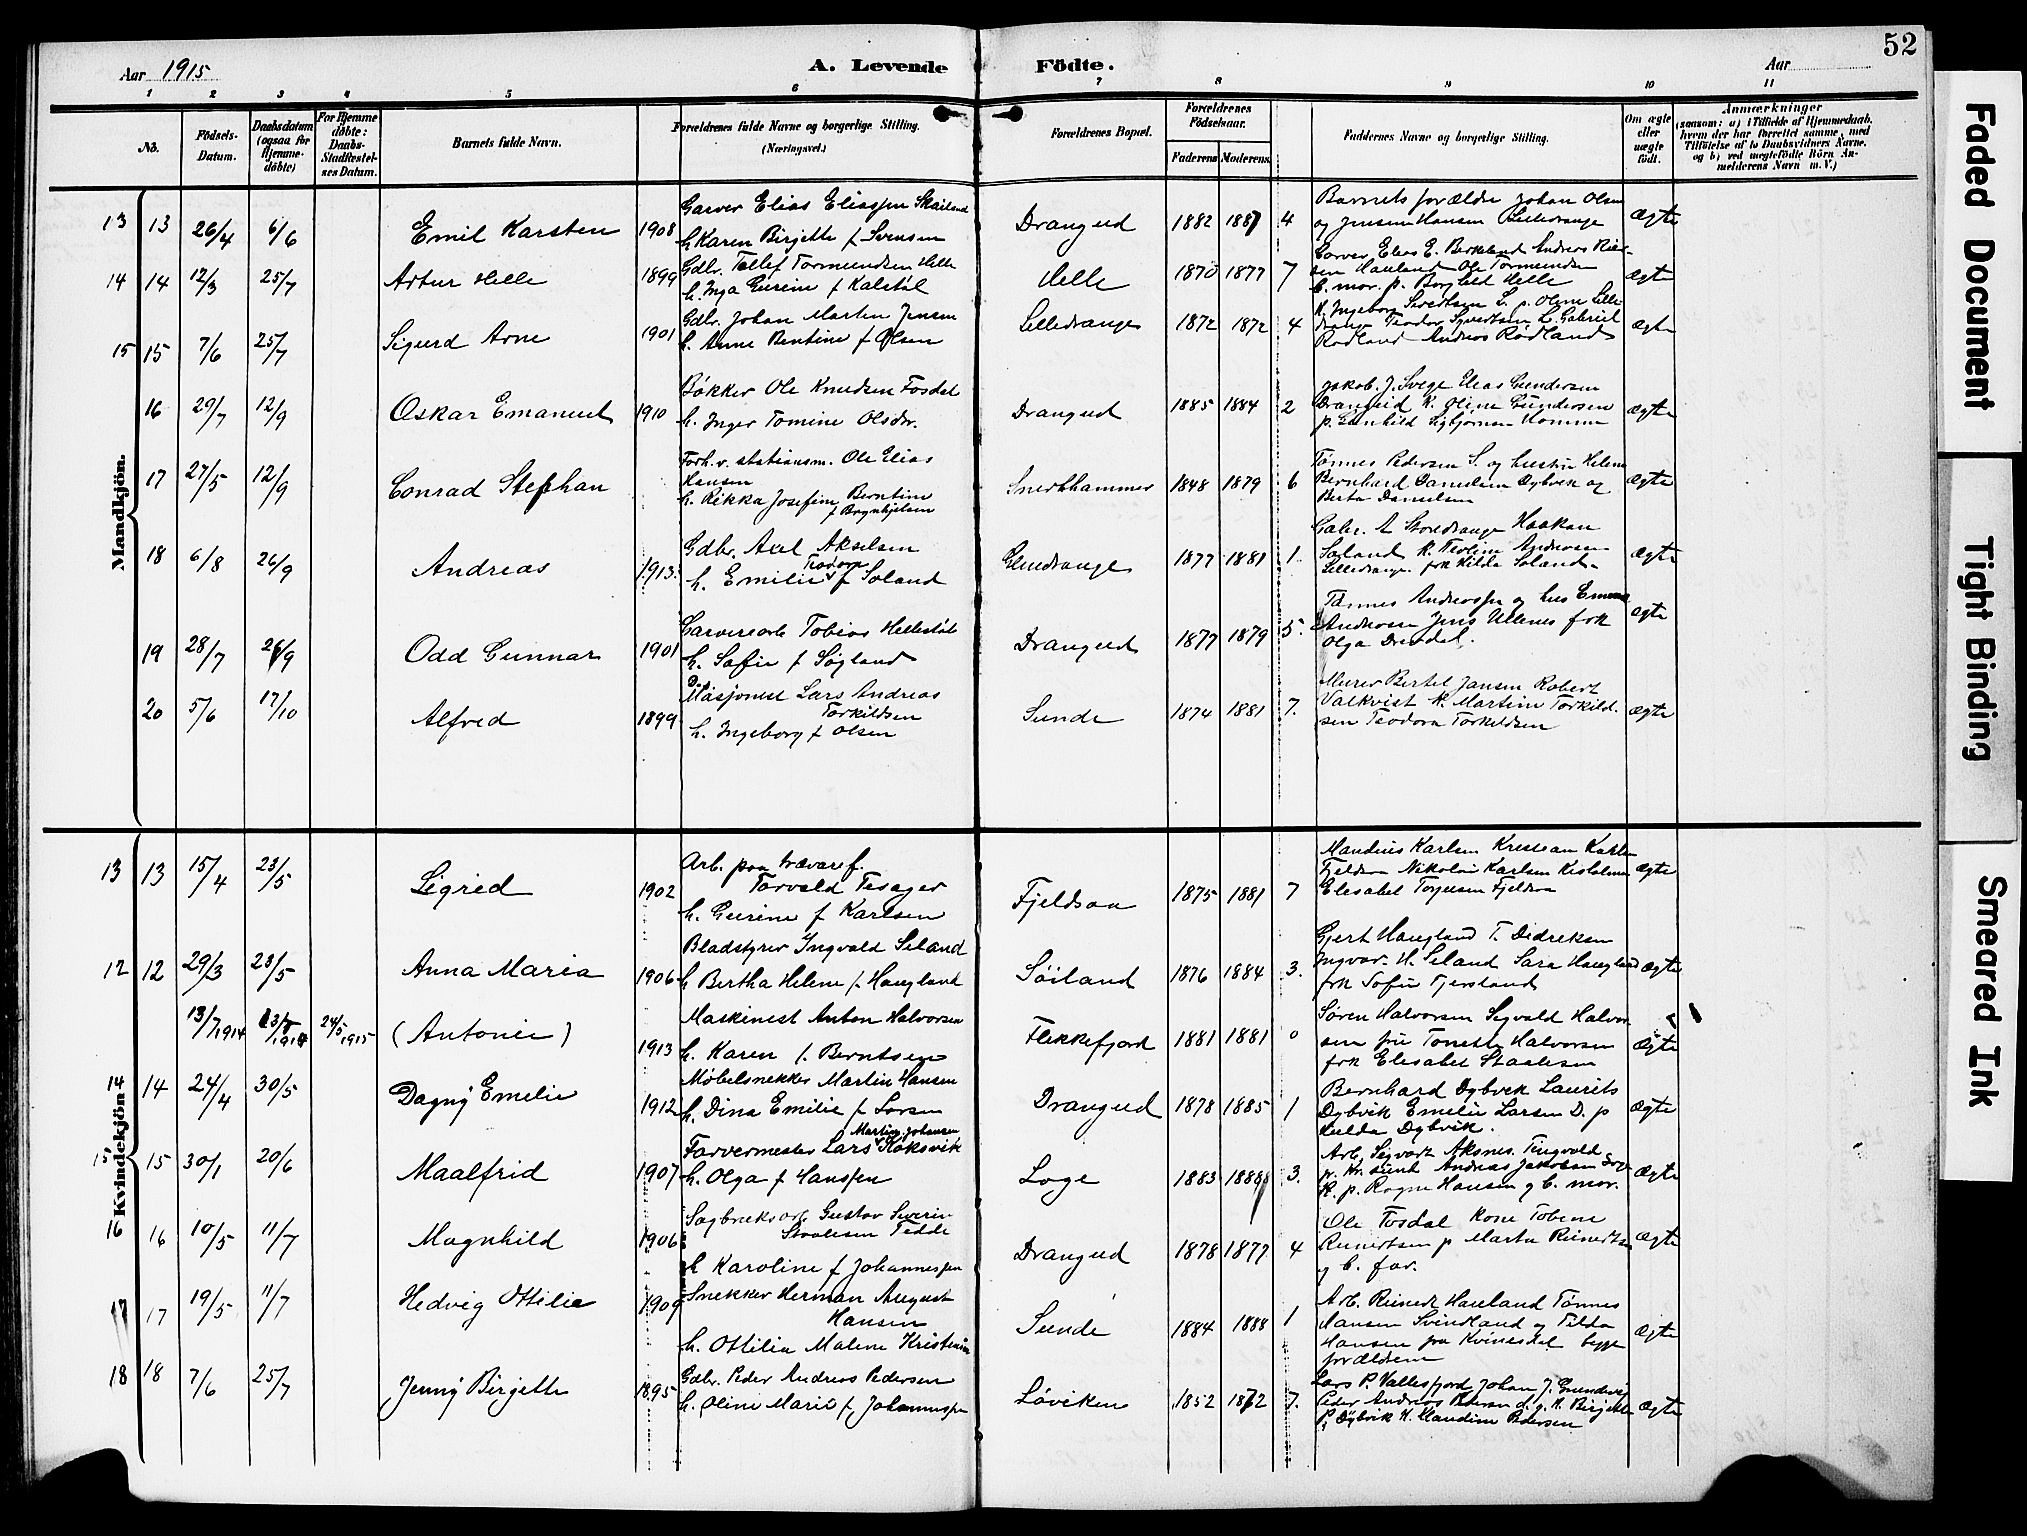 52
Aar 1915
A. Levende Födte.
Aar
1 2 3 4 5 6 7 8 9 10 11
No.
Födsels-Datum.
Daabsdatum (ogsaa for Hjemme-döbte)
For Hjemme döbte: Daabs-Stadfestel-ses Datum.
Barnets fulde Navn.
Forældrenes fulde Navne og borgerlige Stilling.
(Næringsvei.)
Forældrenes Bopæl.
Forældrenes Födselsaar.
Faderens Moderens
Faddernes Navne og borgerlige Stilling.
Om ægte eller uægte födt.
Anmærkninger
(saasom: a) i Tilfælde af Hjemmedaab, hvem der har forrettet samme, med Tilföielse af to Daabsvidners Navne, og b) ved uægtefödte Börn Anmelderens Navn m. V.)
Mandkjön.
13 13 26/4 6/6 Emil Karsten 1908 Garver Elias Eliassen Skailand
h. Karen Birjette f Svensen Drangeid 1882 1887 4 Barnets forældre Johan Olsen
og Jensine Hansen Lilledrange Ægte
14 14 12/3 25/7 Artur Helle 1899 Gdbr. Tellef Tormundsen Helle
h. Inga Gurine f Kalstöl Helle 1870 1877 7 Garver Elias E. Berkeland Andreas
Haaland Ole Tormundsen
B. mor. p. Borghild Helle Ægte
15 15 7/6 25/7 Sigurd Arne 1901 Gdbr. Johan Martin Jensen
h. Anne Bentine f Olsen Lilledrange 1872 1872 4 K. Ingeborg Sivertsen L. p. Oline Lille
drange Teodor Syvertsen L. Gabriel
Rödland Andreas Rödland Ægte
16 29/7 12/9 Oskar Emanuel 1910 Bökker Ole Knudsen Fosdal
h. Inger Tomine Olsdr. Drangeid 1885 1884 2 Jakob J. Svege Elias Gundersen
Drangeid K. Oline Gundersen
p. Gunhild Sigbjörnsen Homme Ægte
17 27/5 12/9 Conrad Stephan Forh.v. stationsm. Ole Elias
Hansen
h. Rikka Josefine Berntine
f Brynhjelsen Snerkhammer 1848 1879 6 Tönnes Pedersen S. og hustru Helene
Bernhard Danielsen Dybvik og
Berta Danielsen Ægte
18 6/8 26/9 Andreas 1913 Gdbr. Axel Akselsen
h. Emilie Teodora f Soland Lilledrange 1877 1881 1 Gabr. A Storedrange Haakon
Soland K. Teoline Andersen
Lilledrange frk Hilda Soland Ægte
19 28/7 26/9 Odd Gunnar 1901 Garverarb Tobias Hellestöl
h. Sofie f Sögland Drangeid 1877 1879 5. Tönnes Andreassen og hus Emma
Andersen Jens Ullenes frk
Olga Dresdal. Ægte
20 5/6 17/10 Alfred 1899 Maskinist Lars Andreas
Torkildsen
h. Ingeborg f Olsen Sunde 1874 1881 7. Murer Bertel Jansen Robert
Valkvist K. Martine Torkild
sen Teodora Torkildsen Ægte
Kvindekjön
13 13 15/4 23/5 Sigrid 1902 Arb. paa trævaref.
Torvald Tesager
h. Gurine f Karlsen Fjeldsaa 1875 1881 7 Maudius Karlsen Kristian Karlsen
Fjeldsaa Nikolai Karlsen Kistolmen
Elisabet Torjusen Fjeldsaa Ægte
12 12 29/3 23/5 Anna Maria 1906 Bladstyrer Ingvald Seland
h Bertha Helene f. Haugland Söiland 1876 1884 3. Gjert Haugland T. Didriksen
Ingvar. H. Seland Sara Haugland
frk Sofie Tjersland Ægte
13/7 1914 23/8 1914 24/5 1915 (Antonie) 1913 Maskinist Anton Halvorsen
h. Karen f. Berntsen Flekkefjord 1881 1881 0 Sören Halvorsen Sigvald Halvor
sen fru Tonette Halvorsen
frk Elisabet Staalesen Ægte
14 14 24/4 30/5 Dagny Emelie 1912 Möbelsnekker Martin Hansen
h. Dina Emilie f Larsen Drangeid 1878 1885 1 Bernhard Dybvik Laurits
Dybvik Emelie Larsen D. p
Hulda Dybvik. Ægte
15 15 30/1 20/6 Maalfrid 1907 Farvermester Lars Martin Johansen Koksvik
h. Olga f Hanssen Loge 1883 1888 3. Arb. Sigvart Aksnes. Tingvold
p. Kr. sund Andreas Jakobsen
K. p. Ragna Hansen og B. mor. Ægte
16 16 10/5 11/7 Magnhild 1906 Sagbruksarb Gustav Severin
Staalesen Fedde
h Karoline f Johannessen Drangeid 1878 1877 4 Ole Fosdal Kone Tobine
Reinertsen p Marta Reinertsen
og B. far. Ægte
17 17 19/5 11/7 Hedvig Ottilie 1909 Snekker Herman August
Hansen
h. Ottilia Malene Kristensen Sunde 1884 1888 1 Arb. Reinert Haaland Tönnes
Hansen Svindland og Tilda
Hansen fra Kvinesdal begge
forældrene Ægte
18 18 7/6 25/7 Jenny Birgette 1895 Gdbr. Peder Andreas Pedersen
h. Oline Marie f Johannessen Löviken 1852 1872 7. Lars P. Vallesfjord Johan J.
Peder Andreas Pedersen d.y. K. Birjette
P. Dybvik K. Klaudine Pedersen Ægte
Faded Document
Tight Binding
Smeared Ink